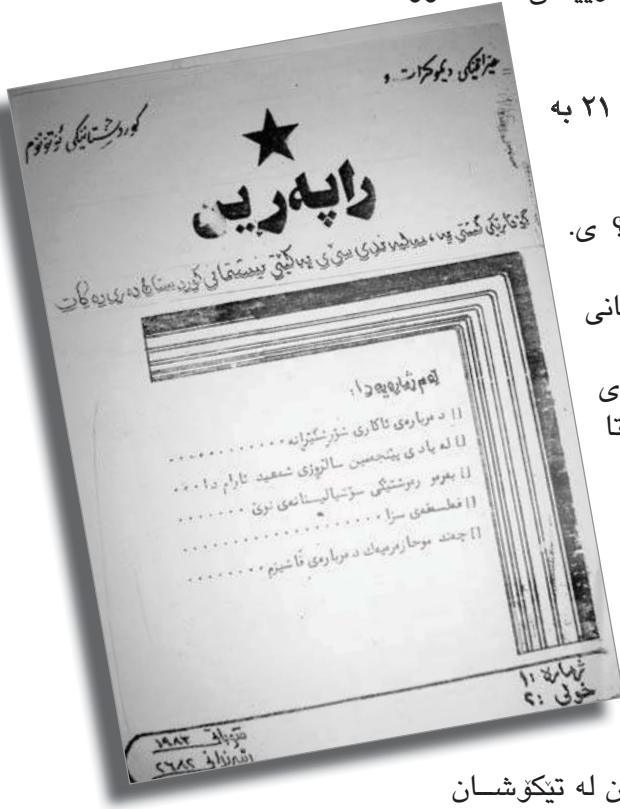 ٢١ به
؟ ی.
انی
ی
تا
عێراقێکی دیموکرات و
کوردستانێکی ئۆتۆنۆم
راپەرین
گۆڤارێکی گشتی یە، مەڵبەندی سێ ی یەکێتی نیشتمانی کوردستان دەری دەکات
لەم ژمارەیەدا:
[] دەربارەی ئاکاری شۆڕشگێڕانە............
[] لە یادی پێنجەمین ساڵڕۆژی شەهید ئارام دا....
[] بەرەو رەوشتێکی سۆشیالیستانەی نوێ ........
[] فەلسەفەی سزا....................
[] چەند موحازەرەیەك دەربارەی فاشیزم........
ژمارە: ١
خولی: ٢
١٩٨٣
٢٦٨٢
ن لە تێکۆشــان